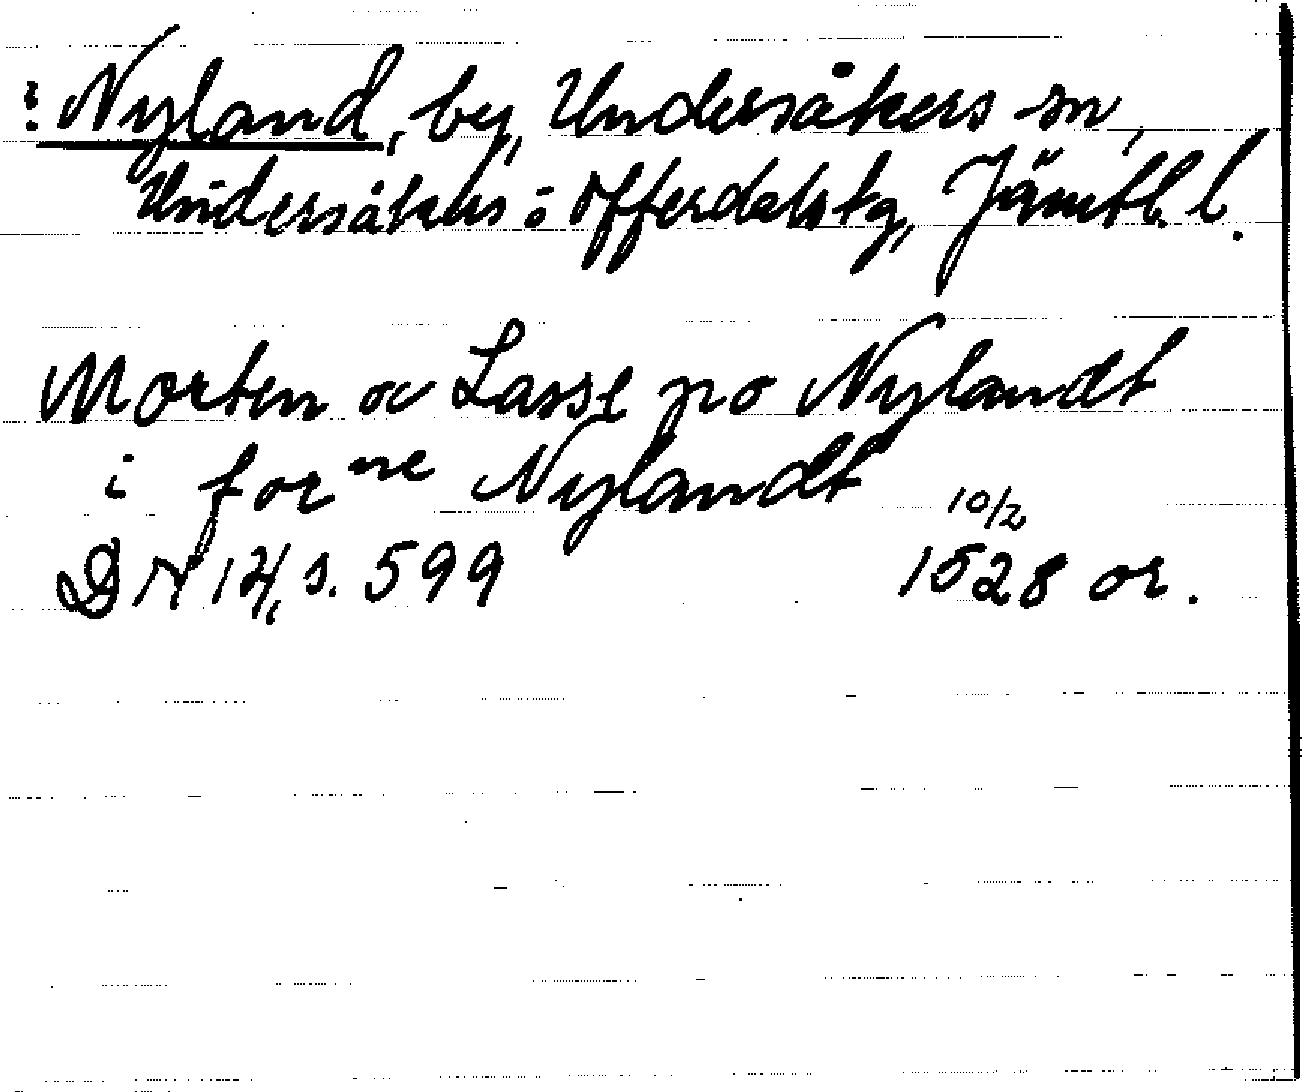 : Nyland, by, Undersåkers sn,
Undersåkers o Offerdals tg, Jämtl. l.
Morten oc Lasse po Nylandt
i for ne Nylandt
10/2
DN 14, s. 599 1528 or.